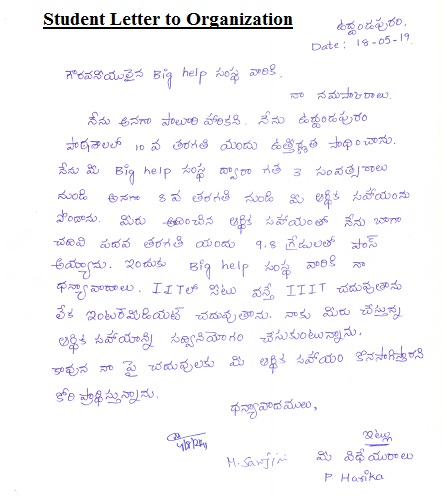 Student Letter to Organization
ఉద్దండపురం.
Date : 18-05-19.
గౌరవనీయులైన Big help సంస్థ వారికి.
నా నమస్కారాలు.
నేను అనగా పాలూరి హారికని. నేను ఉద్దండపురం
పాఠశాలలో 10 వ తరగతి యందు ఉత్తీర్ణత సాధించాను.
నేను మీ Big help సంస్థ ద్వారా గత 3 సంవత్సరాలు
నుండి అనగా 8 వ తరగతి నుండి మీ ఆర్థిక సహాయంను
పొందాను. మీరు అందించిన ఆర్థిక సహాయంతో నేను బాగా
చదివి పదవ తరగతి యందు 9.8 గ్రేడులతో పాస్
అయ్యాను. ఇందుకు Big help సంస్థ వారికి నా
ధన్యావాదాలు. IIITలో సీటు వస్తే IIIT చదువుతాను
లేక ఇంటర్‌మీడియట్ చదువుతాను. నాకు మీరు చేస్తున్న
ఆర్థిక సహాయాన్ని సద్వినియోగం చేసుకుంటున్నాను.
కావున నా పై చదువులకు మీ ఆర్థిక సహాయం కొనసాగిస్తారని
కోరి ప్రార్థిస్తున్నాను.
ధన్యావాదములు,
ఇట్లు
మీ విధేయురాలు
P Harika